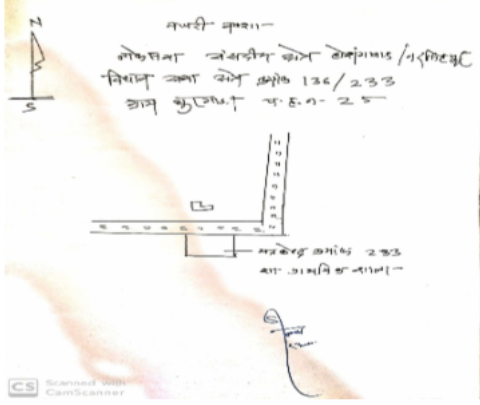 N
नजरी नक्शा
लोकसभा संसदीय क्षेत्र होशंगाबाद / नरसिंहपुर
विधान सभा क्षेत्र क्रमांक 136 / 233
ग्राम प. ह. न. 25
S
मतकेन्द्र क्रमांक 233
शा. प्राथमिक शाला
CS Scanned with
CamScanner